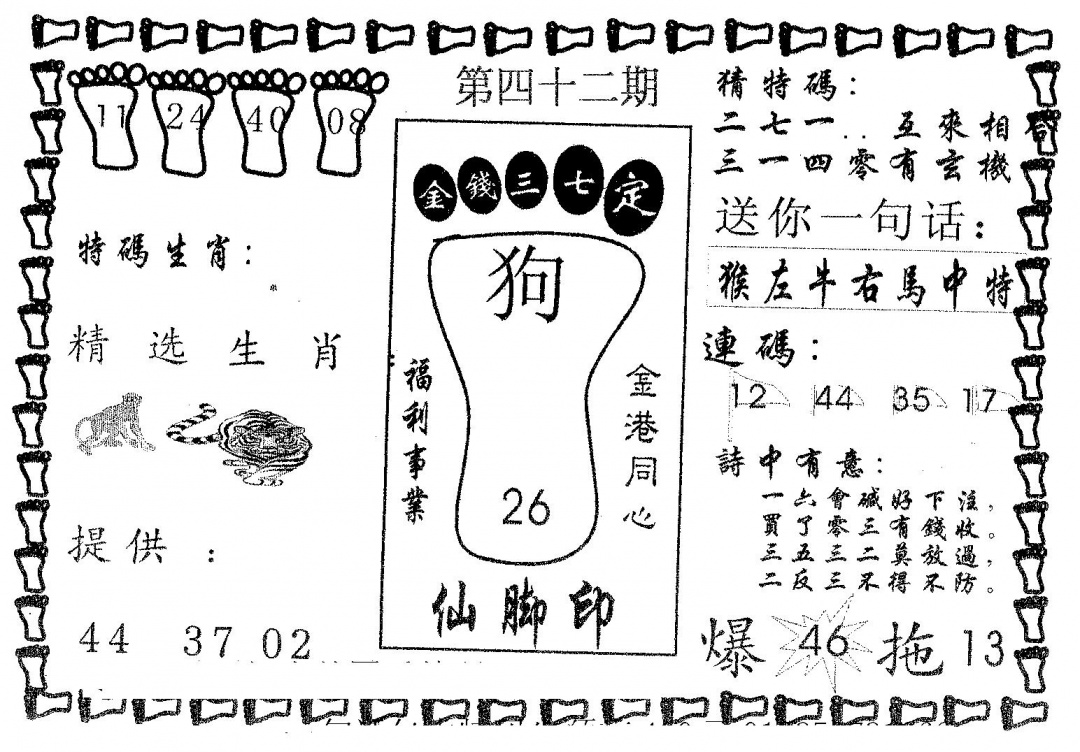 第四十二期
11 24 40 08
特碼生肖：
精选生肖：
提供：
44 37 02
金錢三七定
狗
26
福利事業
金港同心
仙脚印
猜特碼：
二七一..互來相合
三一四零有玄機
送你一句话：
猴左牛右馬中特
連碼：
12 44 35 17
詩中有意：
一六會碱好下注，
買了零三有錢收。
三五三二莫放過，
二反三不得不防。
爆 46 拖 13